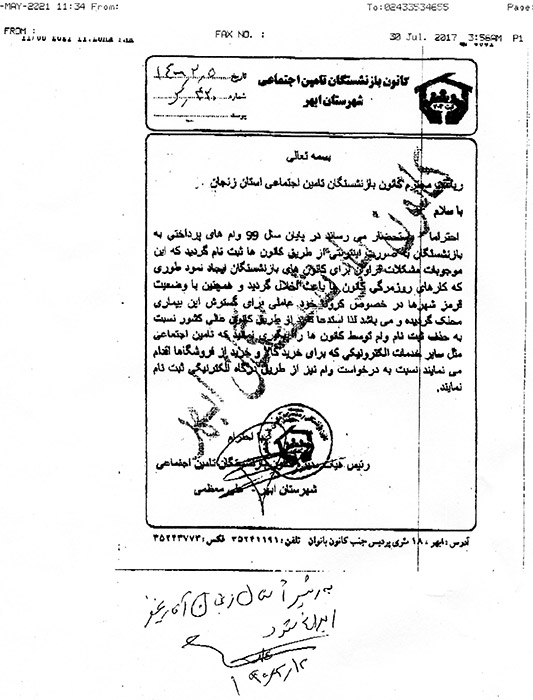 -MAY-2021 11:34 From:
To:02433534655
Page:
FROM :
FAX NO. :
30 Jul. 2017 3:56AM P1
کانون بازنشستگان تامین اجتماعی
شهرستان ابهر
تاریخ
شماره
پیوست
بسمه تعالی
ریاست محترم کانون بازنشستگان تامین اجتماعی استان زنجان
با سلام
احتراما باستحضار می رساند در پایان سال 99 وام های پرداختی به
بازنشستگان به صورت اینترنتی از طریق کانون ها ثبت نام گردید که این
موجوبات مشکلات فراوان برای کانون های بازنشستگان ایجاد نمود طوری
که کارهای روزمرگی کانون ها باعث اخلال گردید و همچنین با وضعیت
قرمز شهرها در خصوص کرونا خود عاملی برای گسترش این بیماری
محلک گردیده و می باشد لذا استدعا دارد از طریق کانون عالی کشور نسبت
به حذف ثبت نام وام توسط کانون ها را پیگیری نمایید که تامین اجتماعی
مثل سایر خدمات الکترونیکی که برای خرید کالا و خرید از فروشگاها اقدام
می نمایند نسبت به درخواست وام نیز از طریق درگاه الکترنیکی ثبت نام
نمایند.
با احترام
رئیس هیات مدیره کانون بازنشستگان تامین اجتماعی
شهرستان ابهر علی معظمی
کانون بازنشستگان ابهر
آدرس: ابهر، ۱۸ متری پردیس جنب کانون بانوان تلفن: ۳۵۲۴۱۱۹۱ فکس: ۳۵۲۴۳۷۷۳